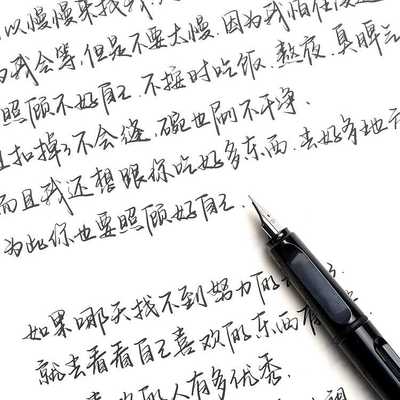 以慢慢来找我
我会等,但是不要太慢.因为我怕
照顾不好自己.不按时吃饭.熬夜.真
扣掉了不会缝,碗也刷不干净、
而且我还想跟你吃好多东西.去好多地方
为此你也要照顾好自己.
如果哪天找不到努力的
就去看看自己喜欢的东西有
的人有多优秀.